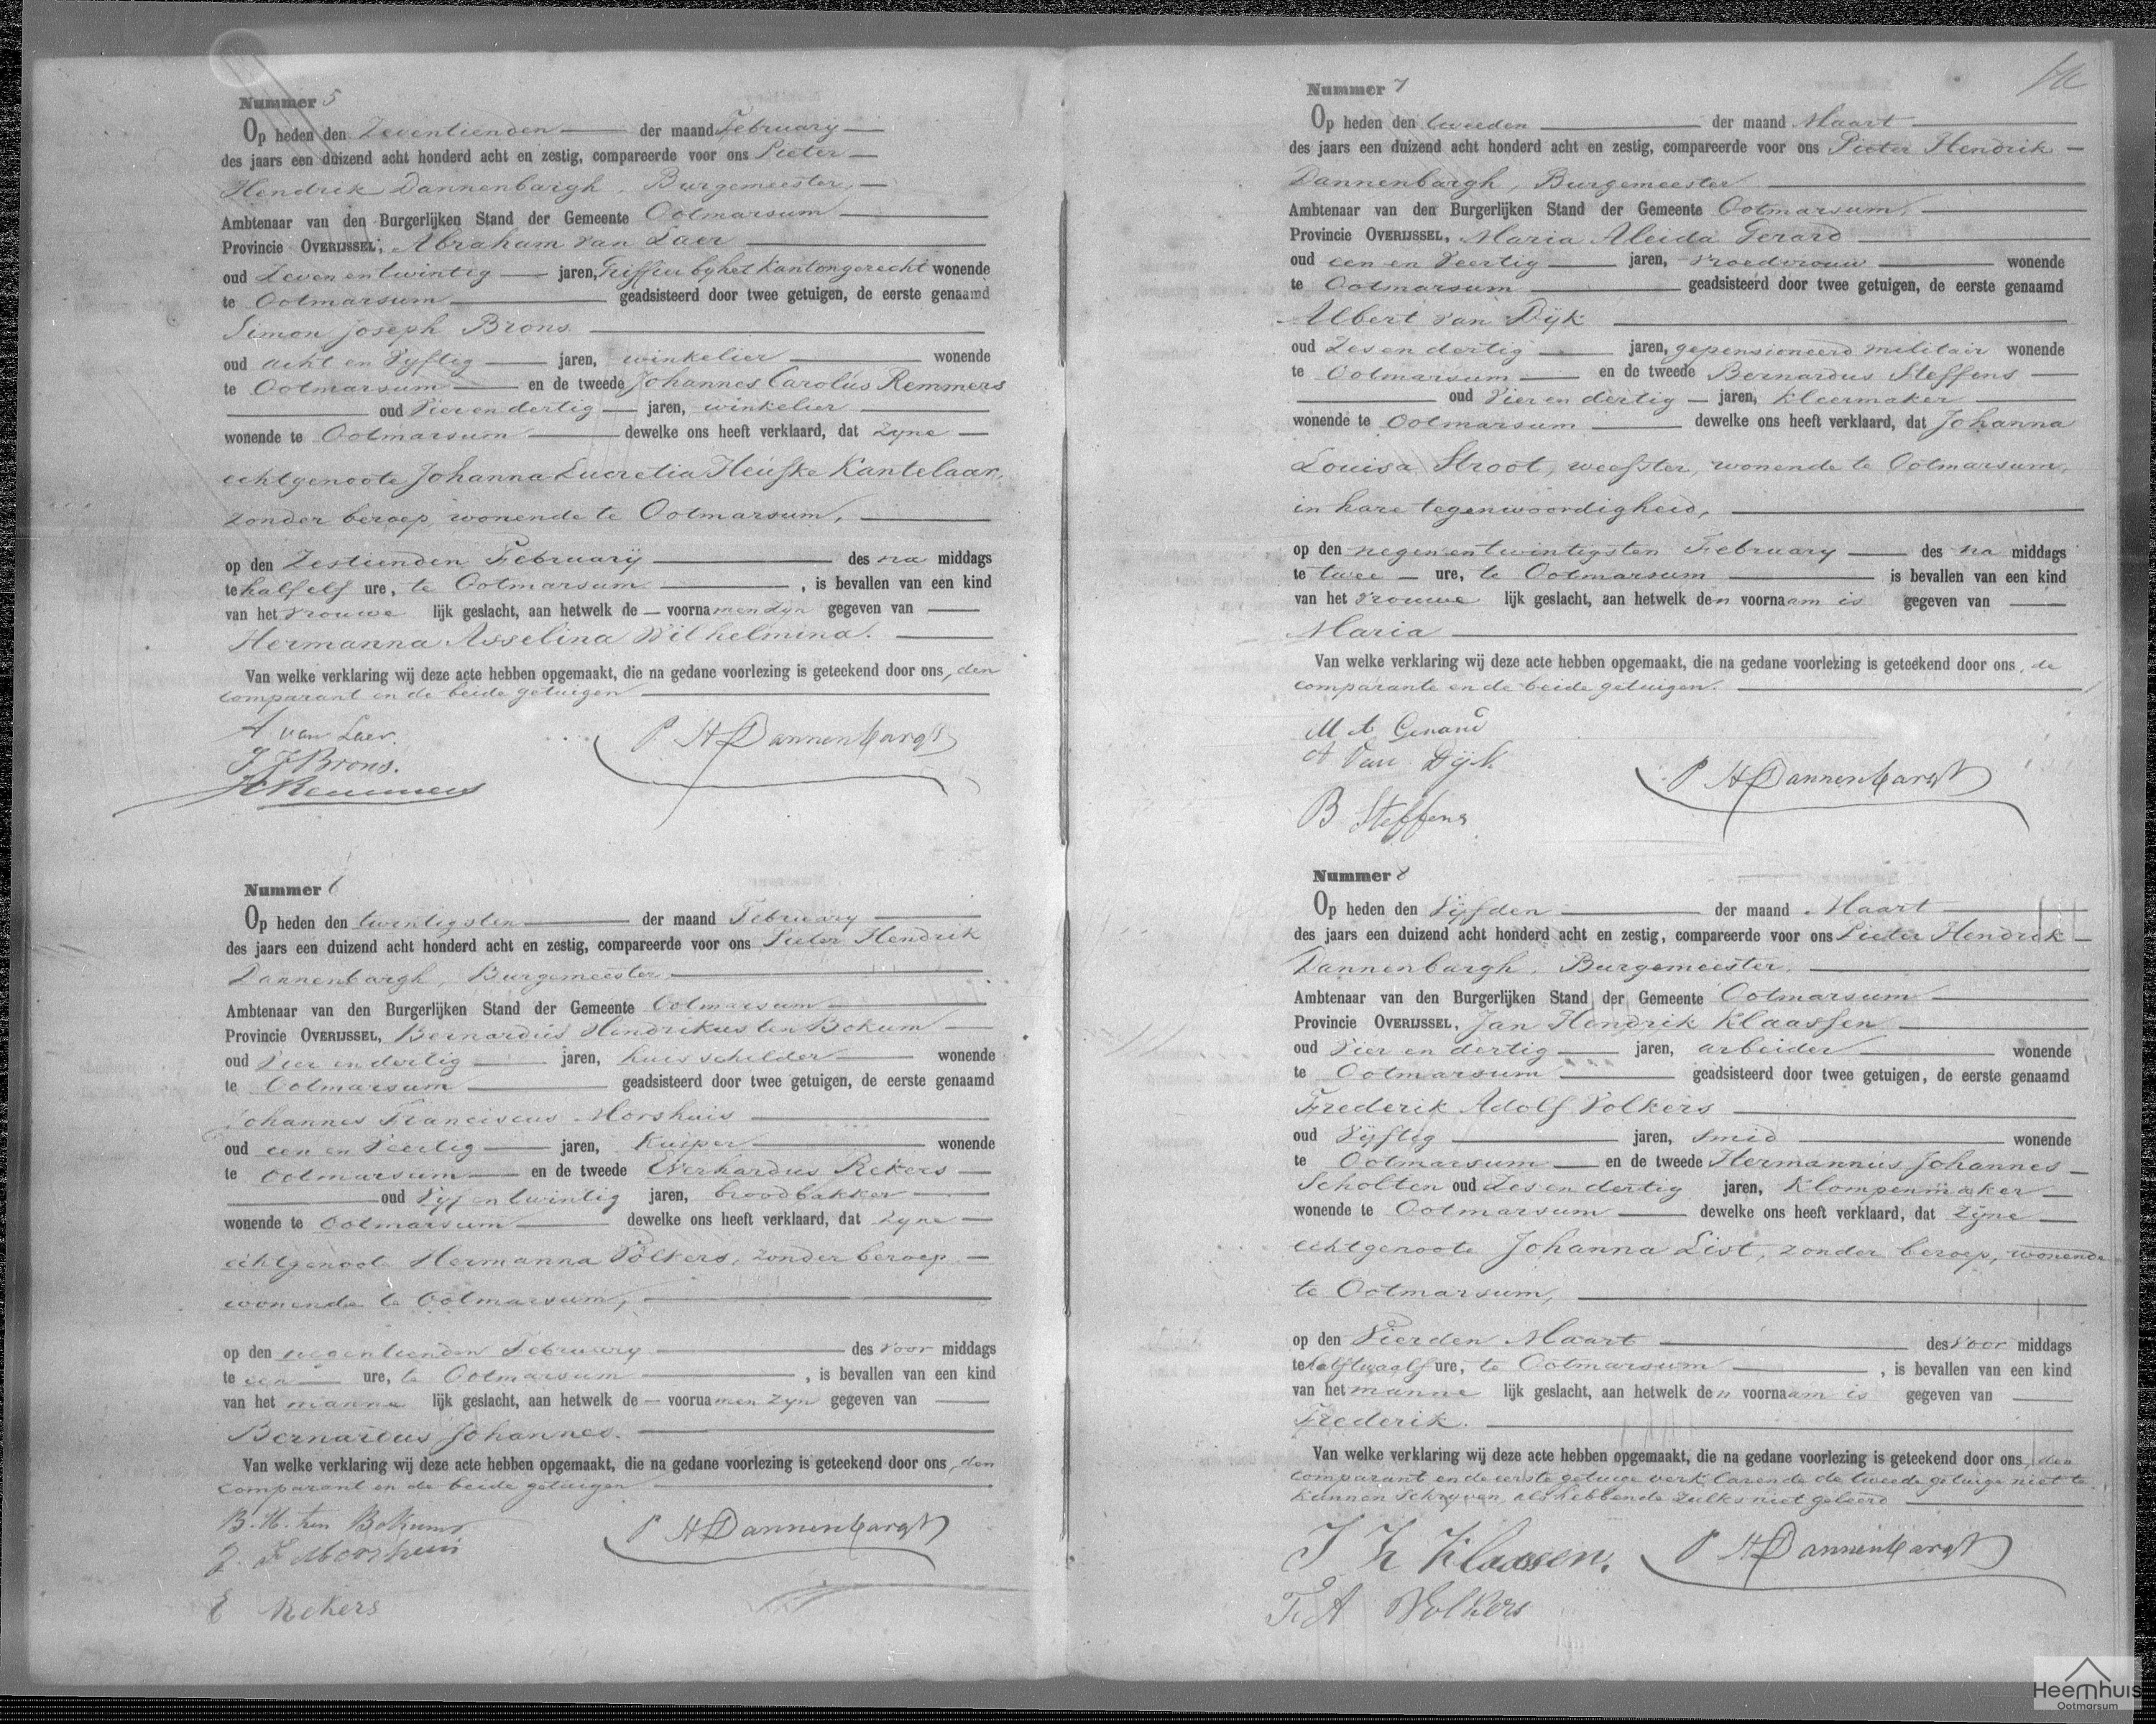 Nummer 5
Op heden den Zeventienden der maand February
des jaars een duizend acht honderd acht en zestig, compareerde voor ons Pieter
Hendrik Dannenbargh, Burgemeester,
Ambtenaar van den Burgerlijken Stand der Gemeente Ootmarsum
Provincie OVERIJSSEL, Abraham van Laer
oud Zeven en twintig jaren, Griffier by het Kantongerecht wonende
te Ootmarsum geadsisteerd door twee getuigen, de eerste genaamd
Simon Joseph Brons
oud acht en vyftig jaren, winkelier wonende
te Ootmarsum en de tweede Johannes Carolus Remmers
oud Vier en dertig jaren, winkelier
wonende te Ootmarsum dewelke ons heeft verklaard, dat zyne
echtgenoote Johanna Lucretia Heufke Kantelaar,
zonder beroep, wonende te Ootmarsum,
op den Zestienden February des na middags
te half elf ure, te Ootmarsum , is bevallen van een kind
van het vrouwe lijk geslacht, aan hetwelk de voornamen zyn gegeven van
Hermanna Asselina Wilhelmina.
Van welke verklaring wij deze acte hebben opgemaakt, die na gedane voorlezing is geteekend door ons, den
comparant en de beide getuigen
A van Laer.
P H Dannenbargh
S J Brons.
Remmers
Nummer 6
Op heden den twintigsten der maand February
des jaars een duizend acht honderd acht en zestig, compareerde voor ons Pieter Hendrik
Dannenbargh, Burgemeester,
Ambtenaar van den Burgerlijken Stand der Gemeente Ootmarsum
Provincie OVERIJSSEL, Bernardus Hendrikus ten Bokum
oud Vier en dertig jaren, huisschilder wonende
te Ootmarsum geadsisteerd door twee getuigen, de eerste genaamd
Johannes Franciscus Morshuis
oud een en Veertig jaren, Kuiper wonende
te Ootmarsum en de tweede Everhardus Rekers
oud Vyf en twintig jaren, broodbakker
wonende te Ootmarsum dewelke ons heeft verklaard, dat zyne
echtgenoote Hermanna Völkers, zonder beroep
wonende te Ootmarsum,
op den negentienden February des voor middags
te een ure, te Ootmarsum , is bevallen van een kind
van het manne lijk geslacht, aan hetwelk de voornamen zyn gegeven van
Bernardus Johannes.
Van welke verklaring wij deze acte hebben opgemaakt, die na gedane voorlezing is geteekend door ons, den
comparant en de beide getuigen
B. H. ten Bokum
P H Dannenbargh
J. F Morshuis
E Rekers
Nummer 7
Op heden den tweeden der maand Maart
des jaars een duizend acht honderd acht en zestig, compareerde voor ons Pieter Hendrik
Dannenbargh, Burgemeester
Ambtenaar van den Burgerlijken Stand der Gemeente Ootmarsum,
Provincie OVERIJSSEL, Maria Aleida Gerard
oud een en Veertig jaren, vroedvrouw wonende
te Ootmarsum geadsisteerd door twee getuigen, de eerste genaamd
Albert van Dyk
oud Zes en dertig jaren, gepensioneerd militair wonende
te Ootmarsum en de tweede Bernardus Steffens
oud Vier en dertig jaren, Kleermaker
wonende te Ootmarsum dewelke ons heeft verklaard, dat Johanna
Louisa Stroot, weefster, wonende te Ootmarsum,
in hare tegenwoordigheid,
op den negen en twintigsten February des na middags
te twee ure, te Ootmarsum is bevallen van een kind
van het vrouwe lijk geslacht, aan hetwelk den voornaam is gegeven van
Maria
Van welke verklaring wij deze acte hebben opgemaakt, die na gedane voorlezing is geteekend door ons, de
comparante en de beide getuigen.
M A Gerard
A Van Dyk
P H Dannenbargh
B Steffens
Nummer 8
Op heden den Vyfden der maand Maart
des jaars een duizend acht honderd acht en zestig, compareerde voor ons Pieter Hendrik
Dannenbargh, Burgemeester,
Ambtenaar van den Burgerlijken Stand der Gemeente Ootmarsum
Provincie OVERIJSSEL, Jan Hendrik Klaassen
oud Vier en dertig jaren, arbeider wonende
te Ootmarsum geadsisteerd door twee getuigen, de eerste genaamd
Frederik Adolf Volkers
oud Vyftig jaren, smid wonende
te Ootmarsum en de tweede Hermannus Johannes
Scholten oud Zes en dertig jaren, Klompenmaker
wonende te Ootmarsum dewelke ons heeft verklaard, dat zyne
echtgenoote Johanna List, zonder beroep, wonende
te Ootmarsum,
op den Vierden Maart des voor middags
te half twaalf ure, te Ootmarsum , is bevallen van een kind
van het manne lijk geslacht, aan hetwelk den voornaam is gegeven van
Frederik.
Van welke verklaring wij deze acte hebben opgemaakt, die na gedane voorlezing is geteekend door ons, den
comparant en de eerste getuige verklarende de tweede getuige niet te
kunnen schryven als hebbende zulks niet geleerd
J H Klaassen.
P H Dannenbargh
F A Volkers
Heemhuis
Ootmarsum